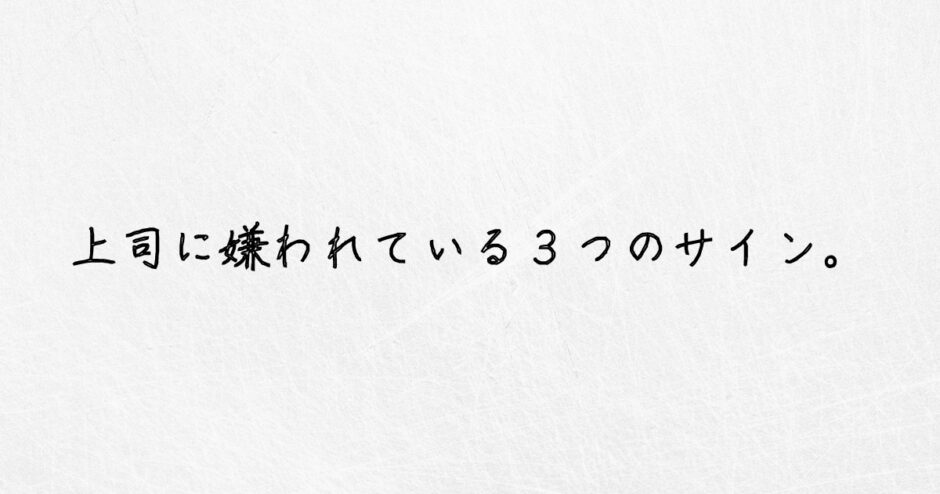 上司に嫌われている３つのサイン。